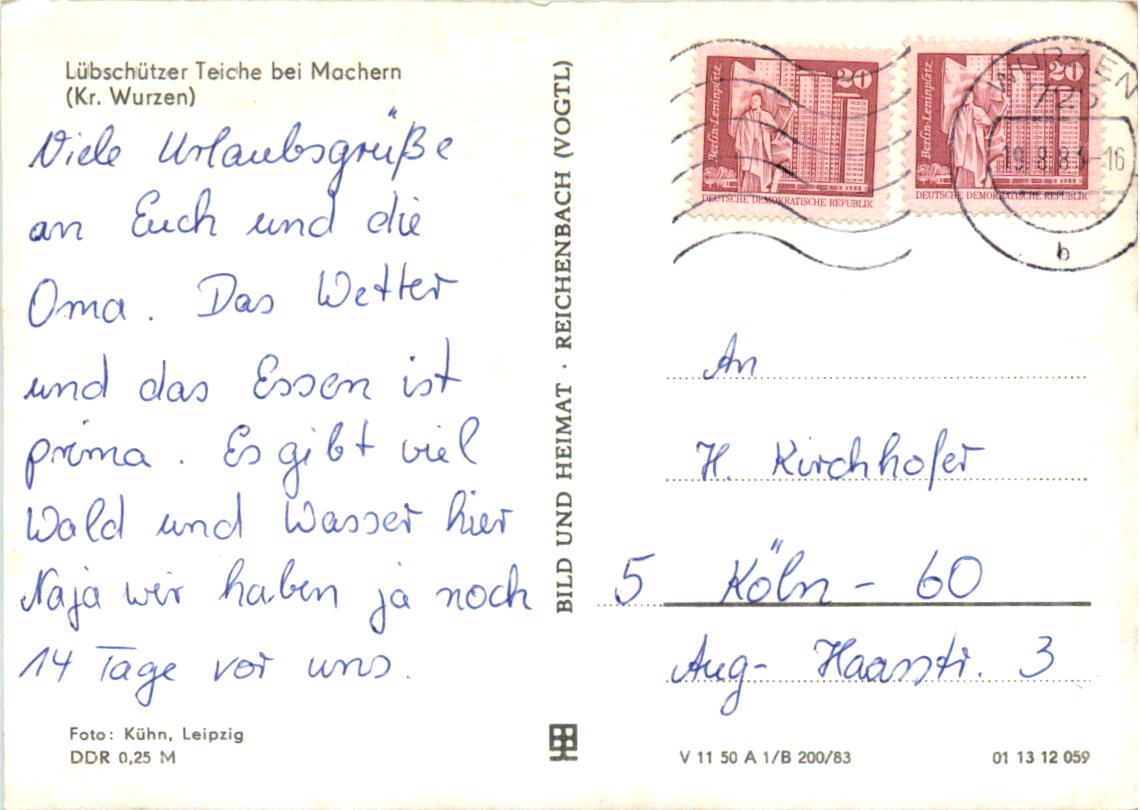 Lübschützer Teiche bei Machern
(Kr. Wurzen)
Viele Urlaubsgrüße
an Euch und die
Oma. Das Wetter
und das Essen ist
prima. Es gibt viel
Wald und Wasser hier
Naja wir haben ja noch
14 Tage vor uns.
Foto: Kühn, Leipzig
DDR 0,25 M
BILD UND HEIMAT · REICHENBACH (VOGTL)
Berlin-Leninplatz
20
DEUTSCHE DEMOKRATISCHE REPUBLIK
Berlin-Leninplatz
20
DEUTSCHE DEMOKRATISCHE REPUBLIK
WURZEN
725
b
An
H. Kirchhofer
5 Köln - 60
Aug- Haasstr. 3
V 11 50 A 1/B 200/83
01 13 12 059